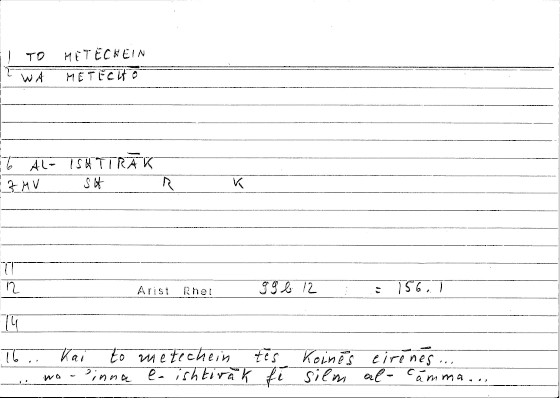 1 TO METECHEIN
2 WA METECHŌ
6 AL- ISHTIRĀK
7 MV SH R K
11
12 Arist Rhet 99b 12 = 156.1
14
16 .. Kai to metechein tēs Koinēs eirēnēs...
.. wa-'inna l- ishtirāk fī silm al-ʿāmma...